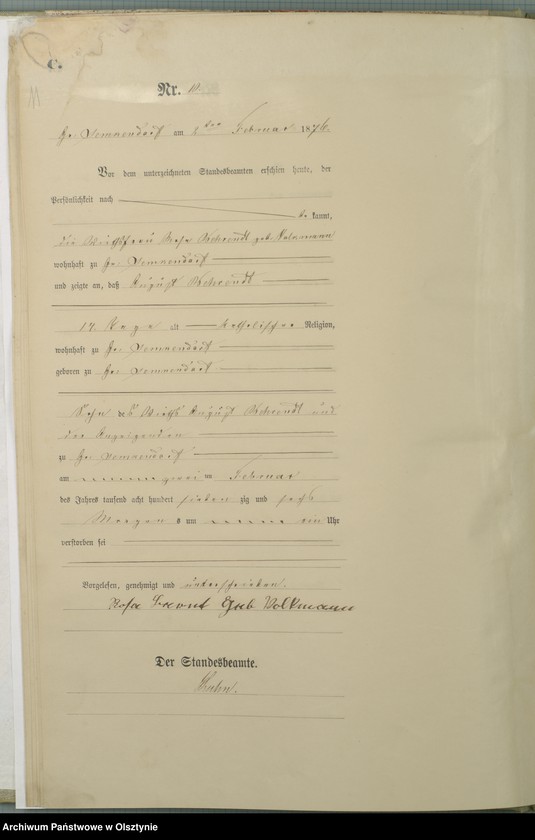 C.
11
Nr. 10.
Gr. am 6ten Februar 1876.
Vor dem unterzeichneten Standesbeamten erschien heute, der
Persönlichkeit nach
bekannt,
die Wirthsfrau Rosa geb. Volkmann
wohnhaft zu Gr.
und zeigte an, daß August
14 Tage alt katholischer Religion,
wohnhaft zu Gr.
geboren zu Gr.
Sohn des Wirths August und
der Anzeigenden
zu Gr.
am zwei ten Februar
des Jahres tausend acht hundert sieben zig und sechs
Morgens um ein Uhr
verstorben sei
Vorgelesen, genehmigt und unterschrieben.
Rosa geb Volkmann
Der Standesbeamte.
Archiwum Państwowe w Olsztynie